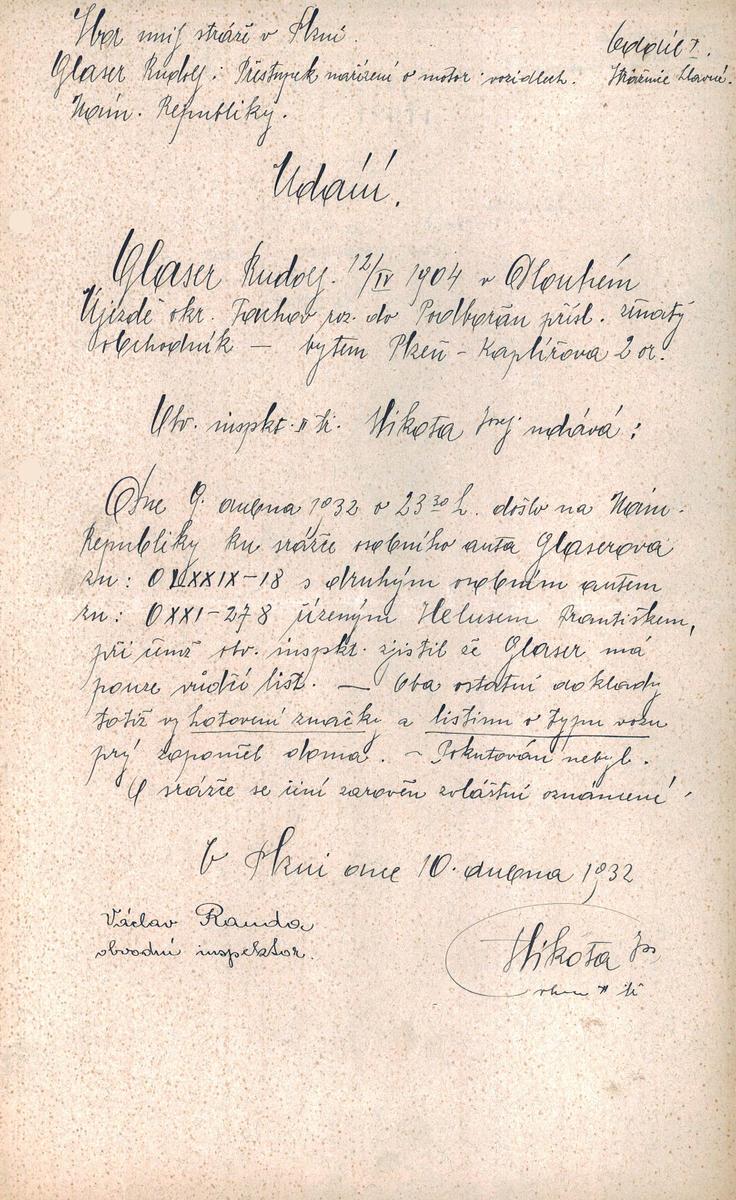 Sbor unif stráže v Plzni.
Oddíl I.
Glaser Rudolf: Přestupek nařízení o motor. vozidlech.
Strážnice hlavní.
Nám. Republiky.
Udání.
Glaser Rudolf. 12/IV 1904 v Dlouhém
Újezdě okr. Tachov roz. do Podbořan přísl. ženatý
obchodník — bytem Plzeň - Kaplířova 2 or.
Obv. inspkt. II tř. Mikota Josef udává:
Dne 9. dubna 1932 o 23 30 h. došlo na Nám.
Republiky ku srážce osobního auta Glaserova
zn: O LXXIX-18 s druhým osobním autem
zn: O XXI-278 řízeným Helusem Františkem,
při čemž obv. inspkt. zjistil že Glaser má
pouze vůdčí list. — Oba ostatní doklady
totiž vyhotovení značky a listinu o typu vozu
prý zapoměl doma. - Pokutován nebyl.
O srážce se činí zarověn zvláštní oznámení.
V Plzni dne 10. dubna 1932
Václav Randa
obvodní inspektor.
Mikota Jos
II tř